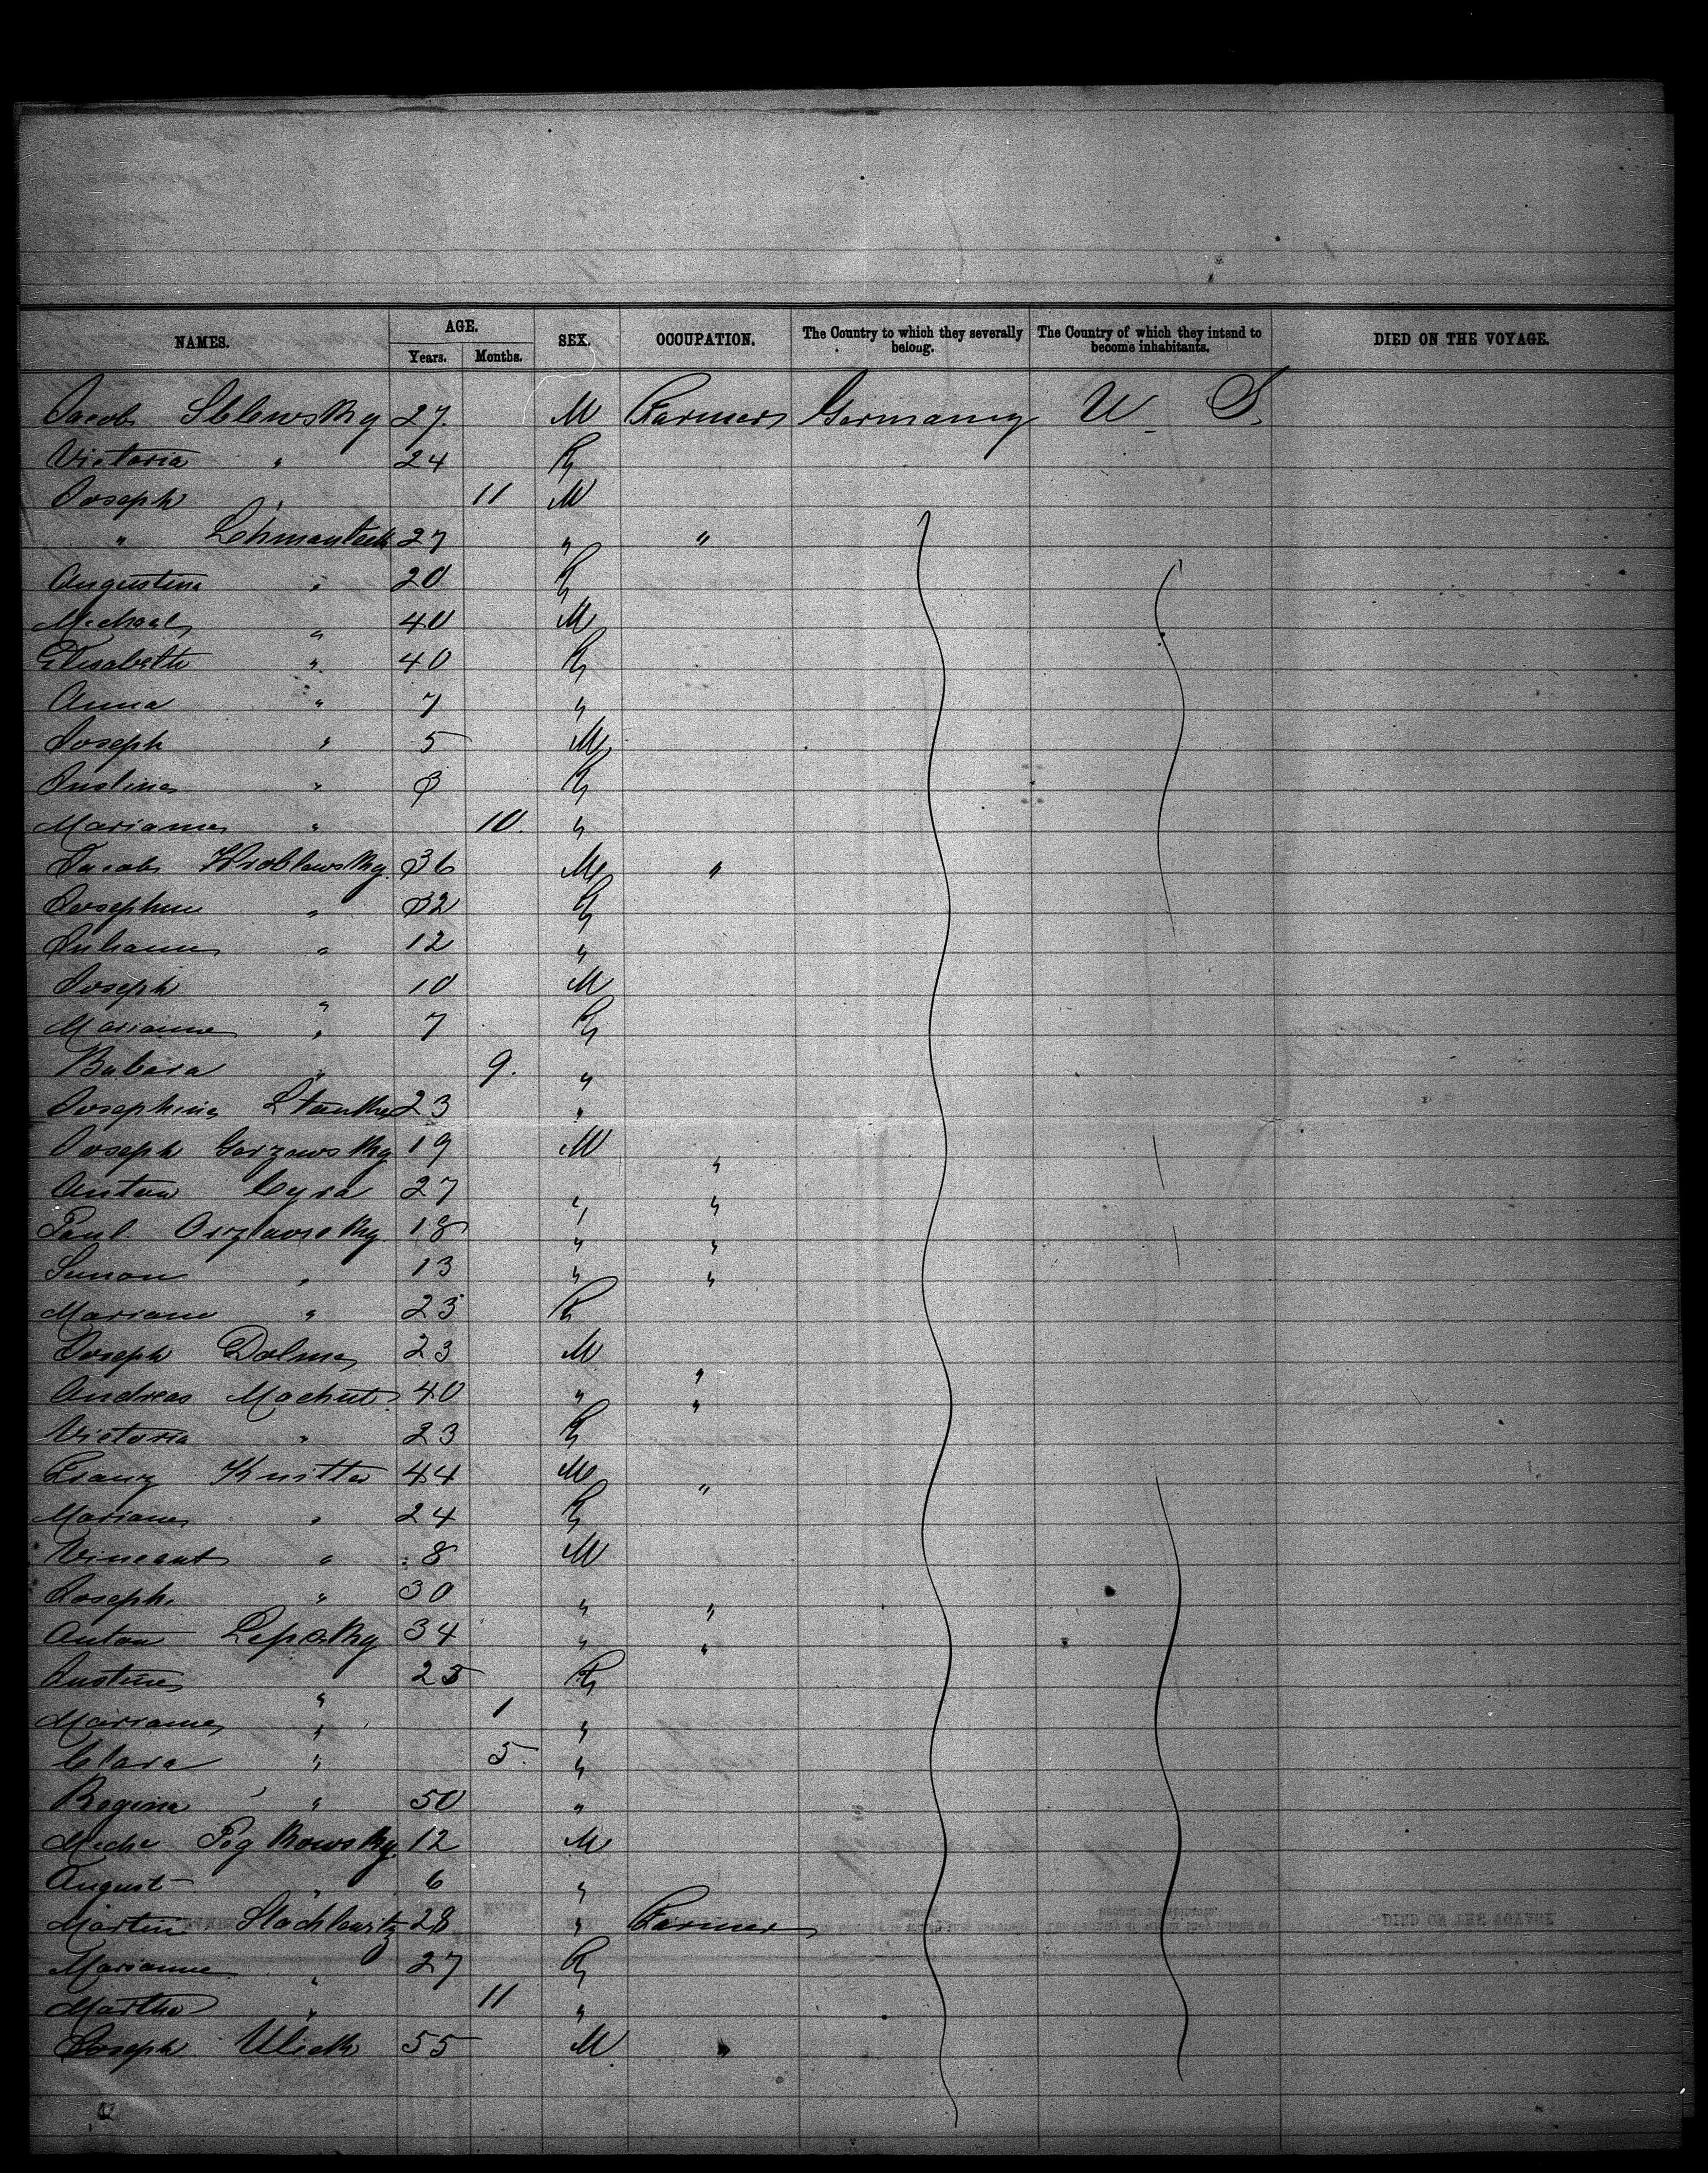 NAMES. AGE. SEX. OCCUPATION. The Country to which they severally belong. The Country of which they intend to become inhabitants. DIED ON THE VOYAGE.
Years. Months.
Jacob Sblewsky 27. M Farmer Germany U S.
Victoria " 24 F
Joseph " 11 M
" Lehmanteck 27 " "
Augustina " 20 F
Michael " 40 M
Elisabeth " 40 F
Anna " 7 "
Joseph " 5 M
Justine " 3 F
Marianne " 10. "
Jacob Wroblewsky. 36 M "
Josephine " 32 F
Julianne " 12 "
Joseph " 10 M
Marianne " 7 F
Babara " 9. "
Josephine Stanke 23 "
Joseph Gorzewsky 19 M "
Anton Cyra 27 " "
Paul Orzlawsky. 18 " "
Simon " 13 " "
Mariane " 23 F
Joseph Dolma 23 M "
Andreas Machut 40 " "
Victoria " 23 F
Franz Knitter 44 M "
Mariane " 24 F
Vincent " 8 M
Joseph " 30 " "
Anton Lepsky 34 " "
Justine " 25 F
Marianne " 1 "
Clara " 5. "
Regina " 50 "
Miche Pogkowsky. 12 M
August " 6 "
Martin Stachlewitz 28 " Farmer
Marianne " 27 F
Martha " 11 "
Joseph Ulick 55 M "